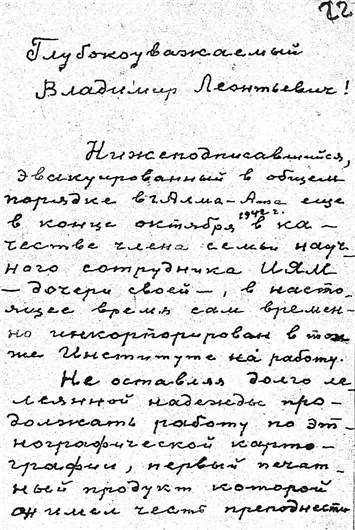 22
Глубокоуважаемый
Владимир Леонтьевич!
Нижеподписавшийся,
эвакуированный в общем
порядке в г. Алма-Ата еще
в конце октября 1942 г. в ка-
честве члена семьи науч-
ного сотрудника ИЯМ
– дочери своей –, в насто-
ящее время сам времен-
но инкорпорирован в том
же Институте на работу.
Не оставляя долго ле-
леянной надежды про-
должать работу по эт-
нографической карто-
графии, первый печат-
ный продукт которой
он имел честь преподнести